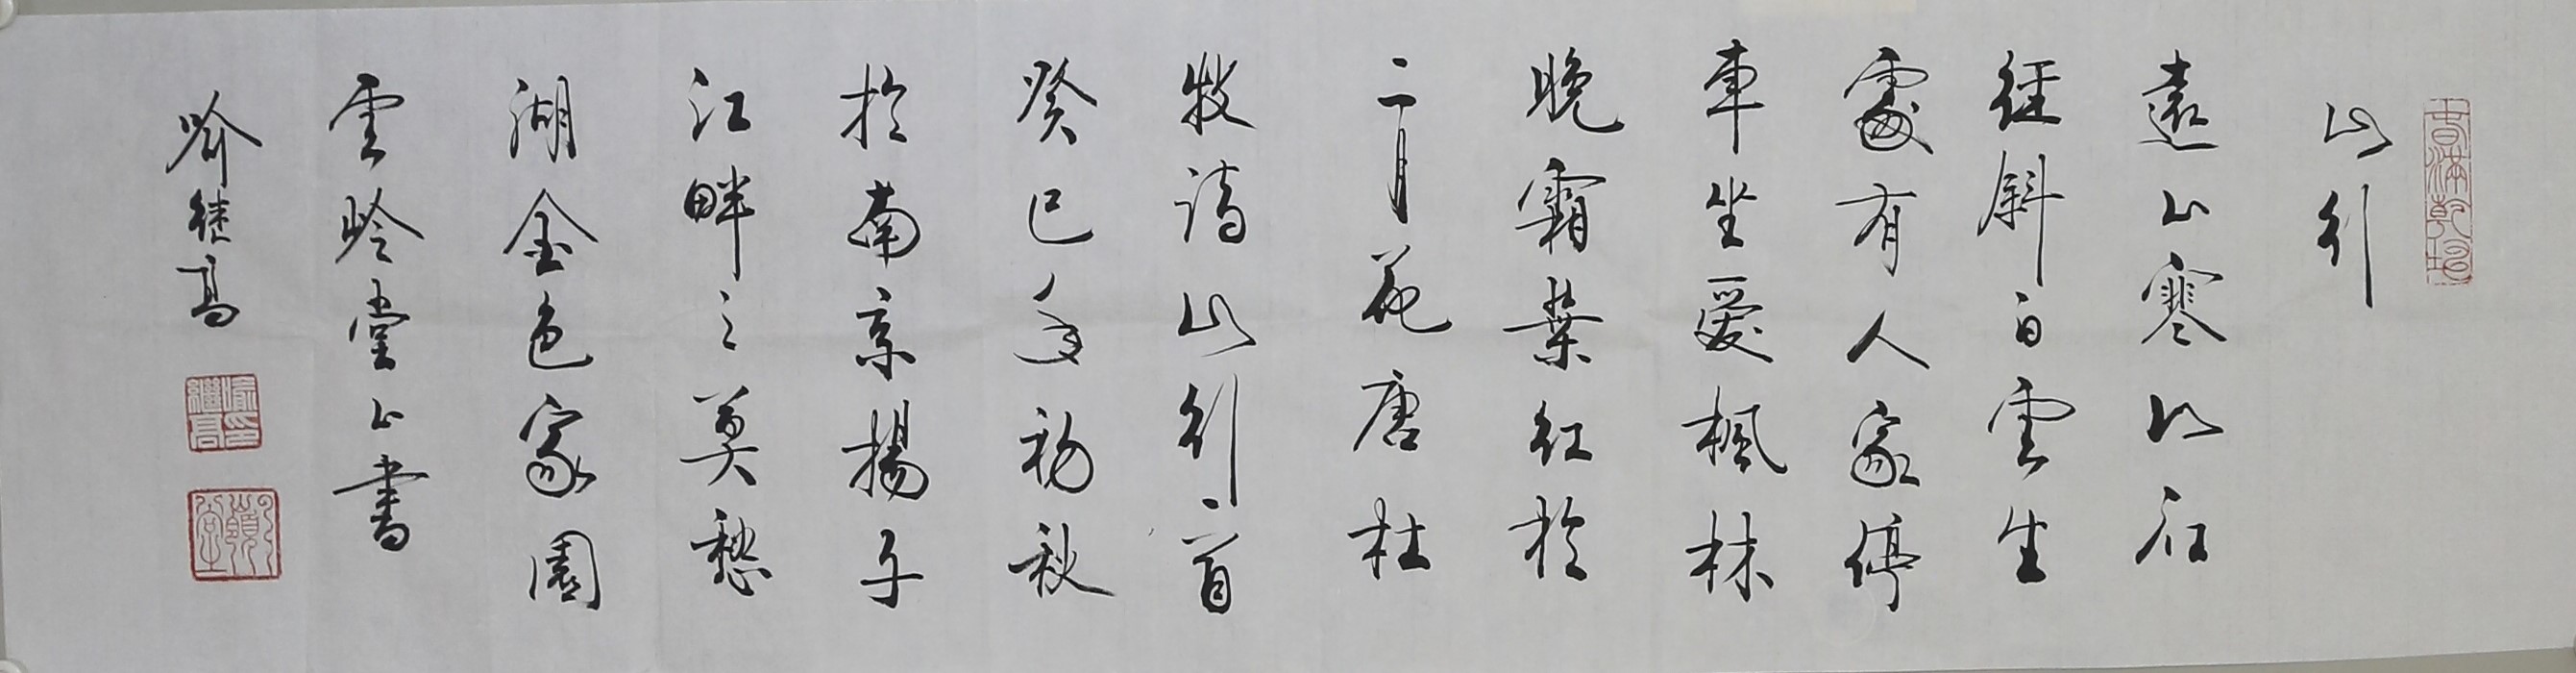 春滿乾坤
山行
遠上寒山石
徑斜白雲生
處有人家停
車坐愛楓林
晚霜葉紅於
二月花唐杜
牧詩山行一首
癸巳年初秋
於南京揚子
江畔之莫愁
湖金色家園
雲岭堂上書
喻继高
喻繼高印
雲嶺堂